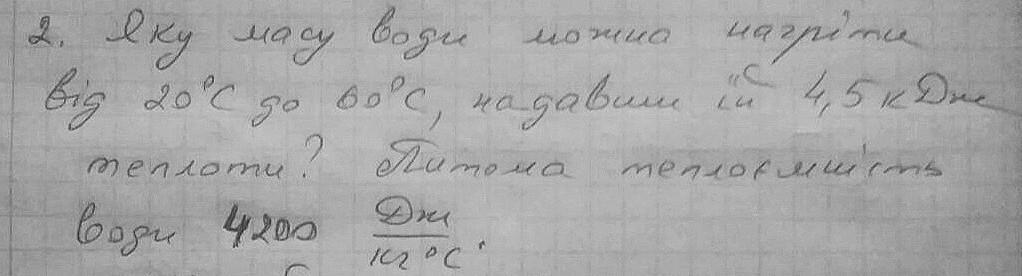 2. Яку масу води можна нагріти
від 20°С до 60°С, надавши їй 4,5 кДж
теплоти? Питома теплоємність
води 4200 Дж/кг°С.